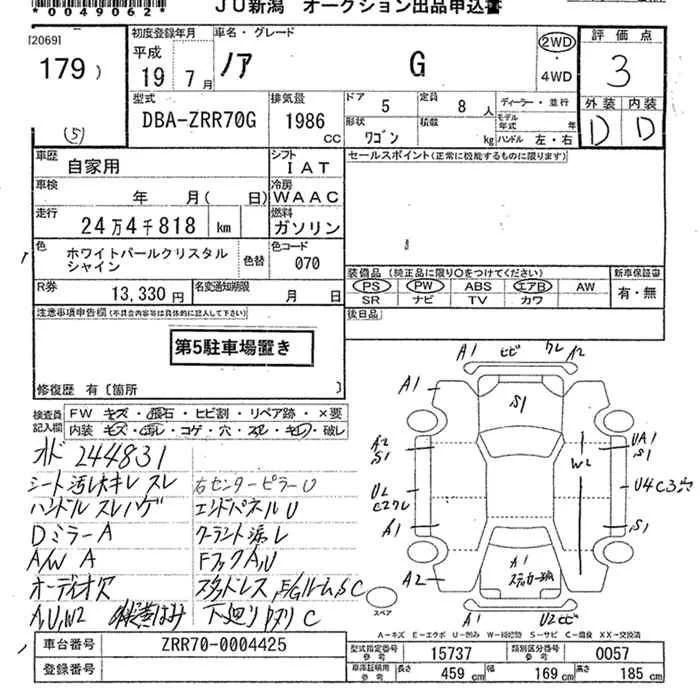 *0049062*
JU新潟 オークション出品申込書
[2069]
179)
(5)
初度登録年月
平成
19 7月
車名・グレード
ノア G
2WD
・
4WD
評価点
3
型式
DBA-ZRR70G
排気量
1986 CC
ドア 5
定員 8人
形状 ワゴン
積載 kg
ディーラー・並行
モデル年式 年
ハンドル 左・右
外装 内装
D D
車歴 自家用
シフト IAT
セールスポイント(正常に機能するものに限ります)
車検 年 月( 日)
冷房 WAAC
走行 24万4千818 km
燃料 ガソリン
色 ホワイトパールクリスタル
シャイン
色替
色コード 070
装備品(純正品に限り○をつけてください)
PS PW ABS エアB AW
SR ナビ TV カワ
新車保証書
有・無
R券 13,330円
名変通知期限 月 日
後日品
注意事項申告欄(不具合内容等は具体的に記入して下さい)
第5駐車場置き
修復歴 有〔箇所 〕
検査員
記入欄
FW キズ・飛石・ヒビ割・リペア跡・×要
内装 キズ・汚レ・コゲ・穴・スレ・キレ・破レ
オド 244831
シート汚レ大キレスレ 右センターピラーU
ハンドルスレハゲ エンドパネルU
DミラーA クーラント漏レ
A/W A FフックA,U
オーディオ欠
A,U,W2 下廻リサビC
A1 ヒビ ワレ A2
A1
S1
A2
S1
UA1
S1
W2
U2
U4C3穴
A1
S1
A2
A1
A1 U2ヒビ
スペア
A−キズ E−エクボ U−凹み W−補修跡 S−サビ C−腐食 XX−交換済
車台番号 ZRR70-0004425
登録番号
型式指定番号
参考
15737
類別区分番号
参考
0057
車庫証明用
参考
長さ 459 cm
幅 169 cm
高さ 185 cm